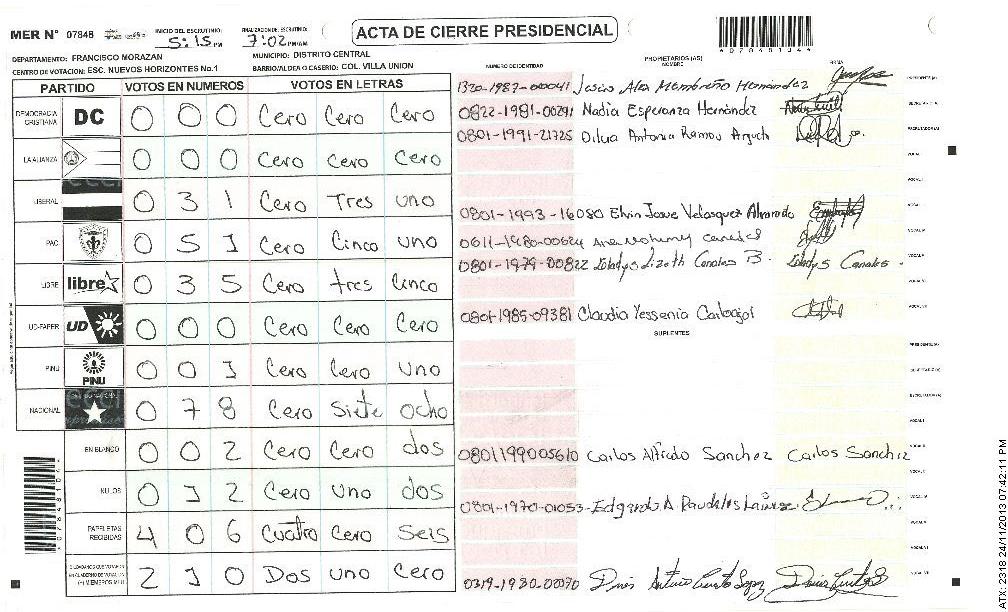 MER N° 07848 INICIO DEL ESCRUTINIO: 5:15 PM FINALIZACION DE ESCRUTINIO: 7:02 PM/AM ACTA DE CIERRE PRESIDENCIAL
DEPARTAMENTO: FRANCISCO MORAZAN MUNICIPIO: DISTRITO CENTRAL
CENTRO DE VOTACION: ESC. NUEVOS HORIZONTES No.1 BARRIO/ALDEA O CASERIO: COL. VILLA UNION
NUMERO DE IDENTIDAD PROPIETARIOS (AS) NOMBRE FIRMA
PARTIDO VOTOS EN NUMEROS VOTOS EN LETRAS
DEMOCRACIA CRISTIANA DC 0 0 0 Cero Cero Cero
LA ALIANZA 0 0 0 Cero Cero Cero
LIBERAL 0 3 1 Cero Tres uno
PAC 0 5 1 Cero Cinco uno
LIBRE libre 0 3 5 Cero tres Cinco
UD-FAPER UD 0 0 0 Cero Cero Cero
PINU PINU 0 0 1 Cero Cero uno
NACIONAL 0 7 8 Cero Siete Ocho
EN BLANCO 0 0 2 Cero Cero dos
NULOS 0 1 2 Cero uno dos
PAPELETAS RECIBIDAS 4 0 6 Cuatro Cero Seis
CIUDADANOS QUE VOTARON 2 1 0 Dos uno Cero
1320-1987-00041 Jesus Alex Membreño Hernandez
0822-1981-00291 Nadia Esperanza Hernández
0801-1991-21725 Antonia
0801-1993-16080 Elvin Josue Velasquez Alvarado
0611-1980-00624
0801-1979-00822 Gladys Lizeth Canales B. Gladys Canales
0801-1985-09381 Claudia Yessenia Carbajal
SUPLENTES
0801199005610 Carlos Alfredo Sanchez Carlos Sanchez
0801-1970-01053 Edgardo A.
0319-1930-00070
4070481044
ATX 2318 24/11/2013 07:42:11 PM